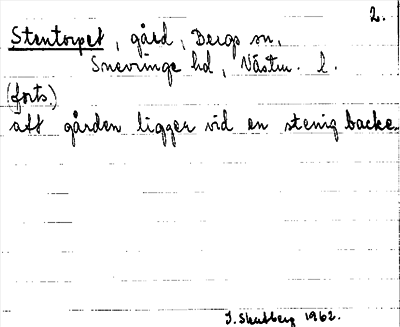 2.
Stentorpet, gård, Bergs sn,
Snevringe hd, Västm. l.
(forts.)
att gården ligger vid en stenig backe.
J. Skutberg 1962.